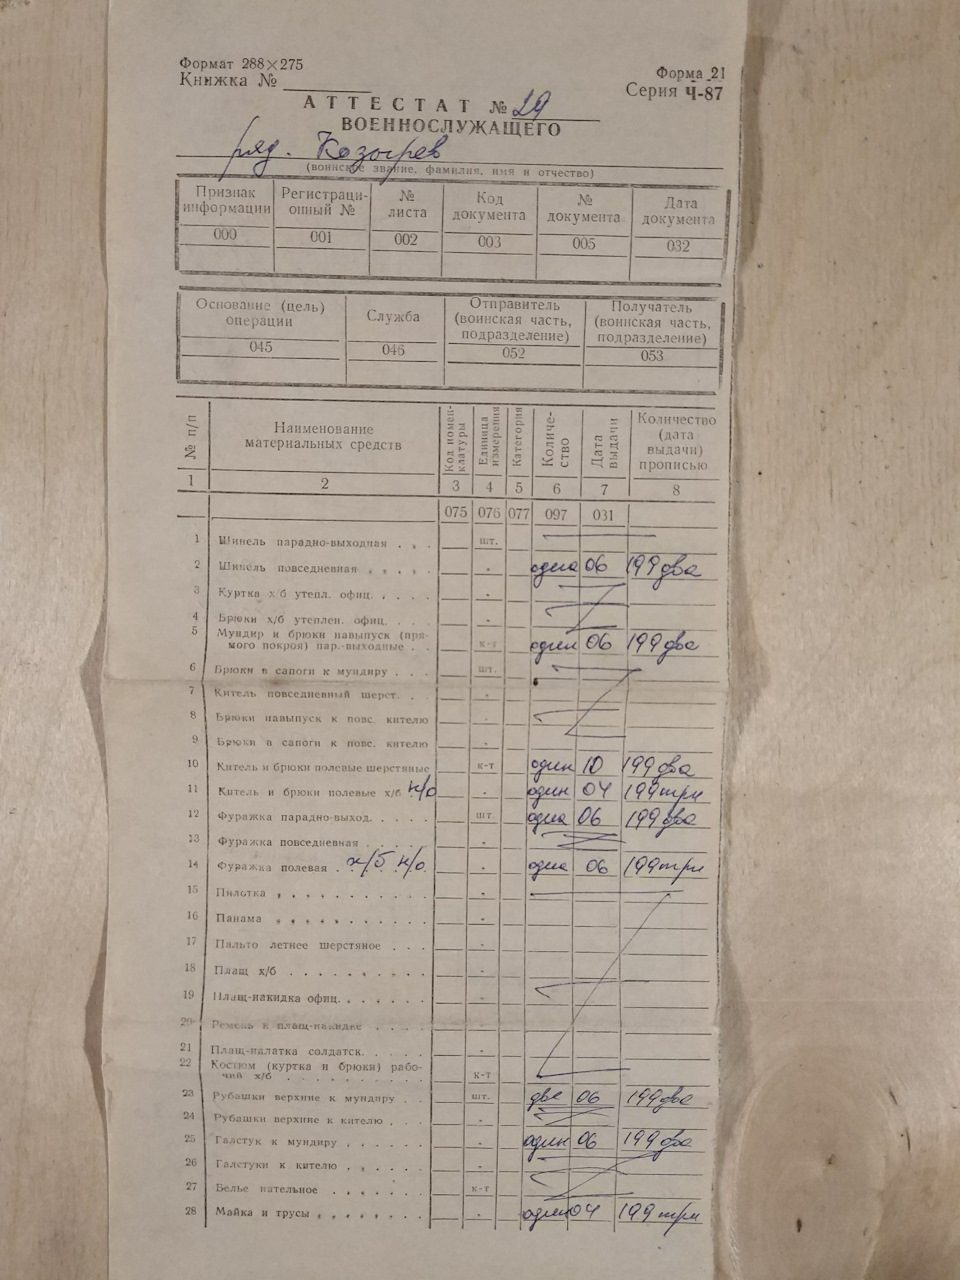 Формат 288×275
Книжка №
Форма 21
Серия Ч-87
АТТЕСТАТ № 29
ВОЕННОСЛУЖАЩЕГО
ряд. Козырев
(воинское звание, фамилия, имя и отчество)
Признак информации Регистраци-онный № № листа Код документа № документа Дата документа
000 001 002 003 005 032
Основание (цель) операции Служба Отправитель (воинская часть, подразделение) Получатель (воинская часть, подразделение)
045 046 052 053
№ п/п Наименование материальных средств Код номен-клатуры Единица измерения Категория Количе-ство Дата выдачи Количество (дата выдачи) прописью
1 2 3 4 5 6 7 8
075 076 077 097 031
1 Шинель парадно-выходная . . . шт.
2 Шинель повседневная . . . . . одна 06 199два
3 Куртка х/б утепл. офиц. . . . .
4 Брюки х/б утеплен. офиц. . . .
5 Мундир и брюки навыпуск (пря-
мого покроя) пар.-выходные . . к-т один 06 199два
6 Брюки в сапоги к мундиру . . . шт.
7 Китель повседневный шерст. . .
8 Брюки навыпуск к повс. кителю
9 Брюки в сапоги к повс. кителю
10 Китель и брюки полевые шерстяные к-т один 10 199два
11 Китель и брюки полевые х/б н/о один 04 199три
12 Фуражка парадно-выход. . . . . шт. одна 06 199два
13 Фуражка повседневная . . . . .
14 Фуражка полевая . х/б н/о одна 06 199три
15 Пилотка . . . . . . . . . .
16 Панама . . . . . . . . . .
17 Пальто летнее шерстяное . . .
18 Плащ х/б . . . . . . . . . .
19 Плащ-накидка офиц. . . . . . .
20 Ремень к плащ-накидке . . . .
21 Плащ-палатка солдатск. . . . .
22 Костюм (куртка и брюки) рабо-
чий х/б . . . . . . . . . . к-т
23 Рубашки верхние к мундиру . . шт. две 06 199два
24 Рубашки верхние к кителю . . .
25 Галстук к мундиру . . . . . . один 06 199два
26 Галстуки к кителю . . . . . .
27 Белье нательное . . . . . . . к-т
28 Майка и трусы . . . . . . . . один 04 199три